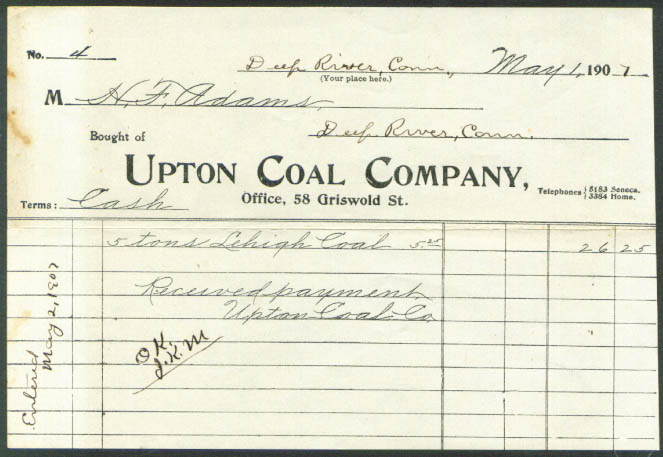 No. 4
Deep River, Conn., May 1, 1907
(Your place here.)
M H. F. Adams,
Bought of Deep River, Conn.
UPTON COAL COMPANY,
Office, 58 Griswold St.
Telephones { 5183 Seneca.
3384 Home.
Terms: Cash
5 tons Lehigh Coal 5.25 26 25
Received payment,
Upton Coal Co.
O.K.
J.K.M
Entered
May 2, 1907